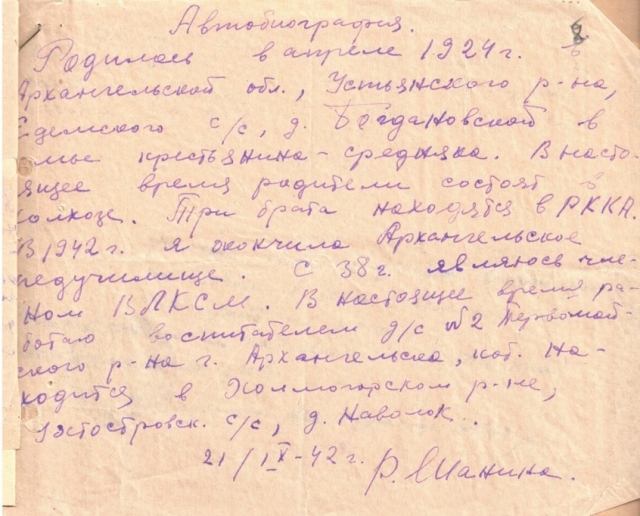 Автобиография.
Родилась в апреле 1924 г. в
Архангельской обл., Устьянского р-на,
Едемского с/с, д. Богдановской в
емье крестьянина-середняка. В насто-
ящее время родители состоят в
колхозе. Три брата находятся в РККА.
В 1942 г. я окончила Архангельское
педучилище. С 38 г. являюсь чле-
ном ВЛКСМ. В настоящее время ра-
ботаю воспитателем д/с №2 Первомай-
ского р-на г. Архангельска, кот. на-
ходится в Холмогорском р-не,
д. Наволок.
21/IX-42 г. Р. Шанина.